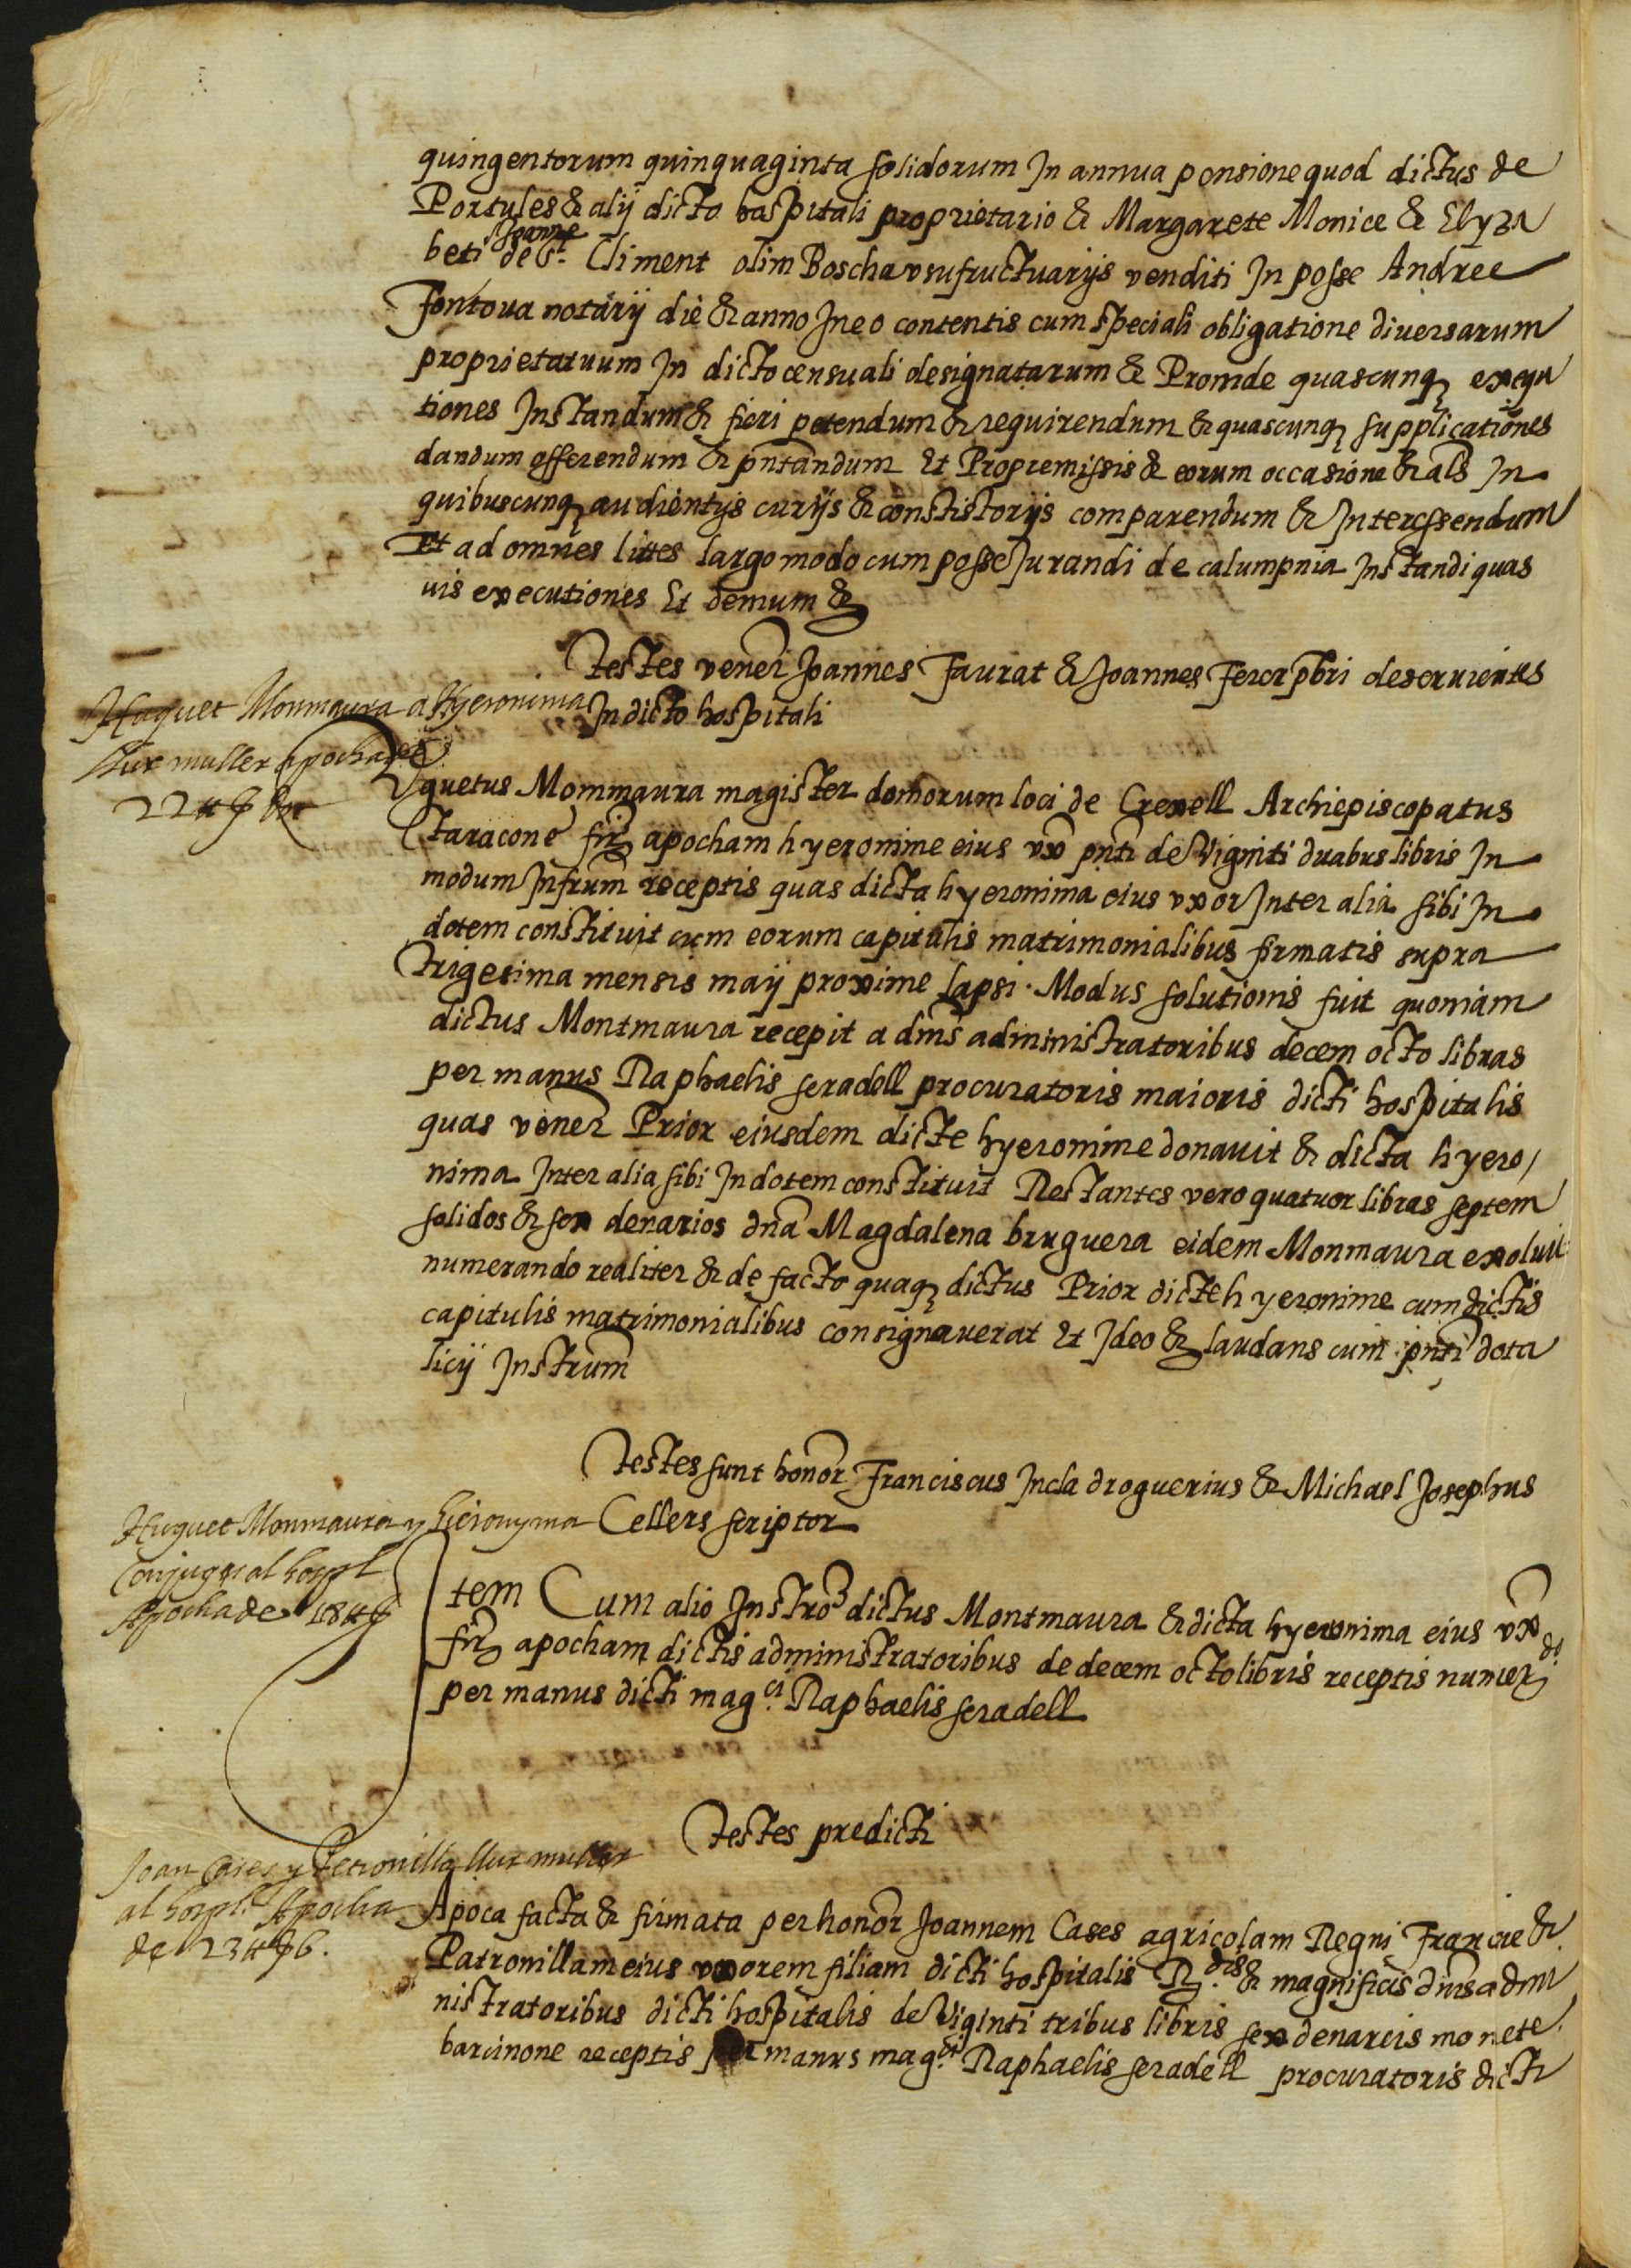 quingentorum quinquaginta solidorum In annua pensione quod dictus de
Portules & alij dicto hospitali proprietario & Margarete Monice & Elyza
Joanne
beti de St. Climent olim Boscha vsufructuarijs venditi In posse Andree
Fontoua notarij die & anno In eo contentis cum speciali obligatione diuersarum
proprietatuum In dicto censuali designatarum & Proinde quascunq exequ
tiones Instandum & fieri petendum & requirendum & quascunq supplicationes
dandum offerendum & pntandum Et Propremissis & eorum occasione & als In
quibuscunq audientijs curijs & constistorijs comparendum & Interessendum
Et ad omnes lites largo modo cum posse Jurandi de calumpnia Instandi quas
uis executiones Et demum &
Testes vener Joannes Faurat & Joannes Ferer pbri deseruientes
In dicto hospitali
Huguet Monmaura a Hyeronima
llur muller apocha de
22 ₶
Vguetus Mommaura magister domorum loci de Crexell Archiepiscopatus
taracone fir apocham hyeronime eius vx pnti de Viginti duabus libris In
modum Infrum receptis quas dicta hyeronima eius vxor Inter alia sibi In
dotem constituit cum eorum capitulis matrimonialibus firmatis supra
trigesima mensis maij proxime lapsi. Modus solutionis fuit quoniam
dictus Montmaura recepit a dnis administratoribus decem octo libras
per manus Raphaelis seradell procuratoris maioris dicti hospitalis
quas vener Prior eiusdem dicte hyeronime donauit & dicta hyero/
nima Inter alia sibi In dotem constituit Restantes vero quatuor libras septem
solidos & sex denarios dna Magdalena bruguera eidem Monmaura exoluit
numerando realiter & de facto quaq dictus Prior dicte hyeronime cum dictis
capitulis matrimonialibus consignauerat Et Ideo & laudans cum pnti dota
licij Instrum
Testes sunt honor Franciscus Incla droguerius & Michael Josephus
Cellers scriptor
Huguet Monmaura y hieronyma
Conjuges al hospl
Apocha de 18 ₶
Item Cum alio Instro dictus Montmaura & dicta hyeronima eius vx
fir apocham dictis administratoribus de decem octo libris receptis numerdo
per manus dicti magci Raphaelis seradell
Testes predicti
Joan Cases y Petronilla llur muller
al hospl. Apocha
de 23 ₶ 6.
Apoca facta & firmata per honor Joannem Cases agricolam Regni Francie &
Patronillam eius vxorem filiam dicti hospitalis Rdis & magnificis dnis admi
nistratoribus dicti hospitalis de Viginti tribus libris sex denareis monete
barcinone receptis per manus magci Raphaelis seradell procuratoris dicti